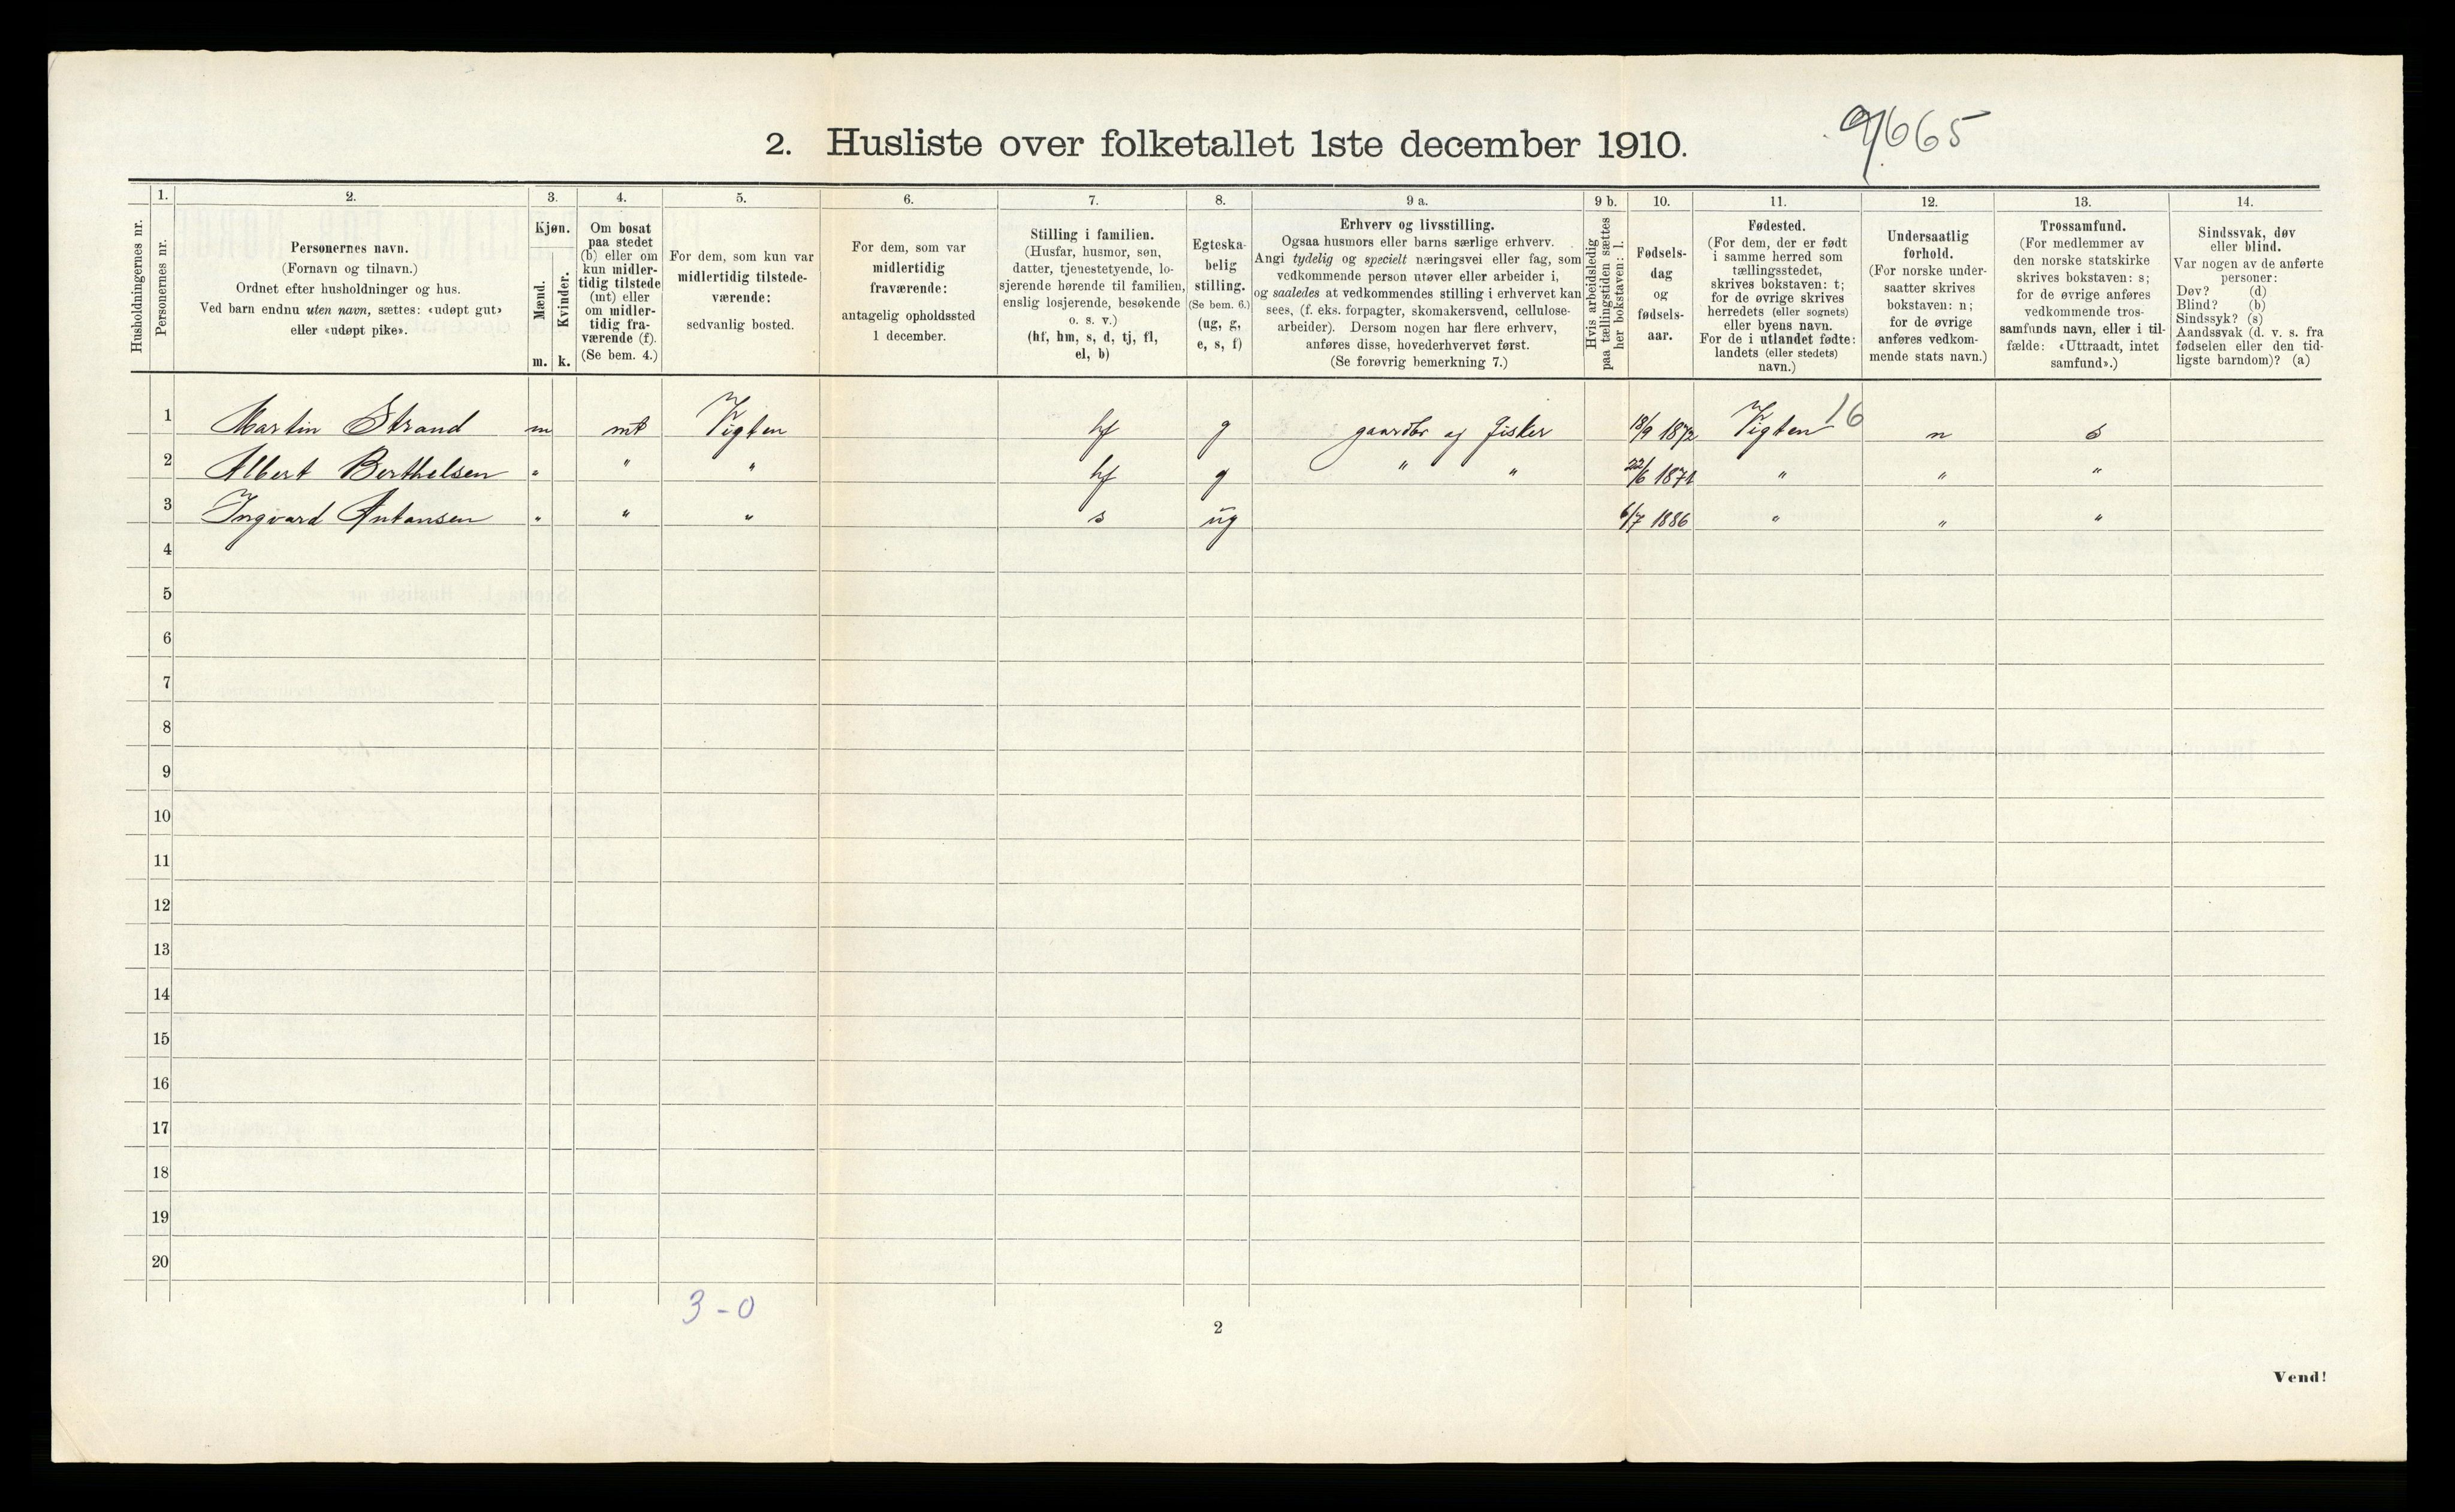 9665
2. Husliste over folketallet 1ste december 1910.
Husholdningernes nr.
1.
Personernes nr.
2.
Personernes navn.
(Fornavn og tilnavn.)
Ordnet efter husholdninger og hus.
Ved barn endnu uten navn, sættes: «udøpt gut»
eller «udøpt pike».
3.
Kjøn.
Mænd.
m.
Kvinder.
k.
4.
Om bosat
paa stedet
(b) eller om
kun midler-
tidig tilstede
(mt) eller
om midler-
tidig fra-
værende (f).
(Se bem. 4.)
5.
For dem, som kun var
midlertidig tilstede-
værende:
sedvanlig bosted.
6.
For dem, som var
midlertidig
fraværende:
antagelig opholdssted
1 december.
7.
Stilling i familien.
(Husfar, husmor, søn,
datter, tjenestetyende, lo-
sjerende hørende til familien,
enslig losjerende, besøkende
o. s. v.)
(hf, hm, s, d, tj, fl,
el, b)
8.
Egteska-
belig
stilling.
(Se bem. 6.)
(ug, g,
e, s, f)
9 a.
Erhverv og livsstilling.
Ogsaa husmors eller barns særlige erhverv.
Angi tydelig og specielt næringsvei eller fag, som
vedkommende person utøver eller arbeider i,
og saaledes at vedkommendes stilling i erhvervet kan
sees, (f. eks. forpagter, skomakersvend, cellulose-
arbeider). Dersom nogen har flere erhverv,
anføres disse, hovederhvervet først.
(Se forøvrig bemerkning 7.)
9 b.
Hvis arbeidsledig
paa tællingstiden sættes
her bokstaven: l.
10.
Fødsels-
dag
og
fødsels-
aar.
11.
Fødested.
(For dem, der er født
i samme herred som
tællingsstedet,
skrives bokstaven: t;
for de øvrige skrives
herredets (eller sognets)
eller byens navn.
For de i utlandet fødte:
landets (eller stedets)
navn.)
12.
Undersaatlig
forhold.
(For norske under-
saatter skrives
bokstaven: n;
for de øvrige
anføres vedkom-
mende stats navn.)
13.
Trossamfund.
(For medlemmer av
den norske statskirke
skrives bokstaven: s;
for de øvrige anføres
vedkommende tros-
samfunds navn, eller i til-
fælde: «Uttraadt, intet
samfund».)
14.
Sindssvak, døv
eller blind.
Var nogen av de anførte
personer:
Døv? (d)
Blind? (b)
Sindssyk? (s)
Aandssvak (d. v. s. fra
fødselen eller den tid-
ligste barndom)? (a)
1 Martin Strand m mt Vigten hf g gaardbr og fisker 18/9 1872 Vigten 16 n s
2 Albert Berthelsen " " " hf g " " 22/6 1871 " " "
3 Ingvard Antonsen " " " s ug 6/7 1886 " " "
4
5
6
7
8
9
10
11
12
13
14
15
16
17
18
19
20
3 - 0
2
Vend!